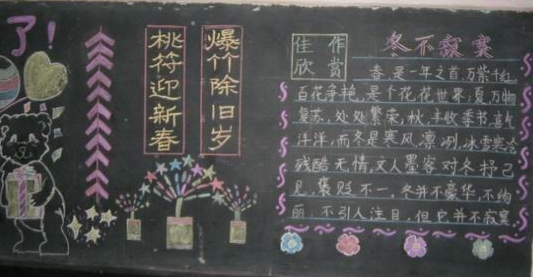 了!
爆竹除旧岁
桃符迎新春
佳作
欣赏
冬不寂寞
春是一年之首,万紫千红
百花争艳,是个花花世界,夏,万物
复苏,处处繁荣,秋,丰收季节,喜气
洋洋,而冬是寒风凛冽,冰雪寒冷
残酷无情,文人墨客对冬抒己
见,褒贬不一,冬并不豪华,不绚
丽,不引人注目,但它并不寂寞